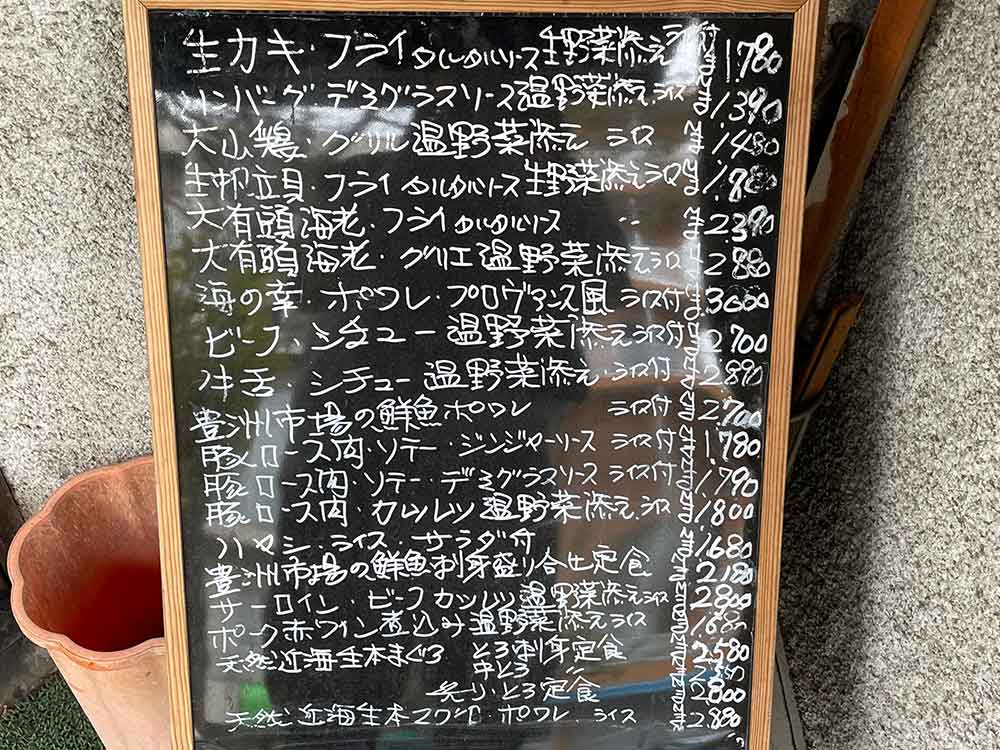 生カキ・フライ タルタルソース 生野菜添え ライス付 1.780
ハンバーグ デミグラスソース 温野菜添え.ライス 1.390
大山鶏・グリル 温野菜添え ライス 1480
生帆立貝・フライ タルタルソース 生野菜添え ライス
大有頭海老・フライ タルタルソース 〃 2.390
大有頭海老・グリエ 温野菜添え ライス 2880
海の幸・ポワレ・プロヴァンス風 ライス付 3000
ビーフ・シチュー 温野菜添え ライス付 2700
牛舌・シチュー 温野菜添え・ライス付 2.890
豊洲市場の鮮魚ポワレ ライス付 2.700
豚ロース肉・ソテー・ジンジャーソース ライス付 1.780
豚ロース肉・ソテー・デミグラスソース ライス付 1.790
豚ロース肉・カツレツ 温野菜添え.ライス 1800
ハヤシ・ライス・サラダ付 1.680
豊洲市場の鮮魚刺身盛り合せ定食 2.180
サーロイン・ビーフカツレツ 温野菜添え ライス 2800
ポーク赤ワイン煮込み 温野菜添え ライス 1.680
天然近海生本まぐろ とろ刺身定食 2.580
中とろ 〃
炙り・とろ定食 2800
天然近海生本マグロ・ポワレ・ライス 2.880